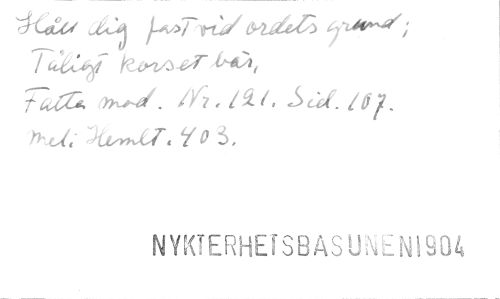 Håll dig fast vid ordets grund;
Tåligt korset bär,
Fatta mod. Nr. 121. Sid. 107.
mel: Hemlt. 403.
NYKTERHETSBASUNEN 1904